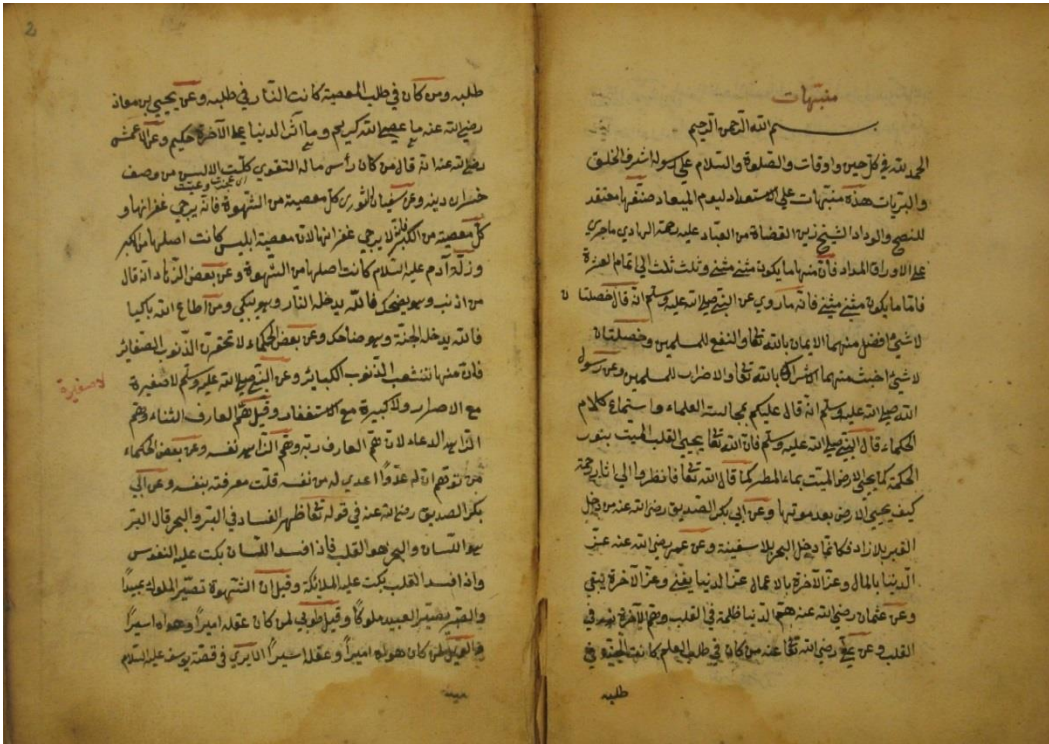 منبهات
بسم الله الرحمن الرحيم
الحمد لله في كل حين واوقات والصلوة والسلام على رسوله اشرف الخلق
والبريات هذه منبهات على الاستعداد ليوم الميعاد صنفها معتقد
للنصح والوداد الشيخ زين القضاة من العباد عليه رحمة الهادي ماجرى
على الاوراق المداد فان منها ما يكون مثنى مثنى وثلث ثلث الى تمام العشرة
فاما ما يكون مثنى مثنى فانه ما روي عن النبي صلى الله عليه وسلم انه قال خصلتا ن
لا شئ افضل منهما الايمان بالله تعالى والنفع للمسلمين وخصلتان
لا شئ اخبث منهما الاشراك بالله تعالى والاضرار للمسلمين وعن رسول
الله صلى الله عليه وسلم انه قال عليكم بمجالسة العلماء واستماع كلام
الحكماء قال النبي صلى الله عليه وسلم فان الله تعالى يحيي القلب الميت بنور
الحكمة كما يحيي الارض الميت بماء المطر كما قال الله تعالى فانظر الى اثار رحمة
كيف يحيي الارض بعد موتها وعن ابي بكر الصديق رضي الله عنه من دخل
القبر بلا زاد فكانما دخل البحر بلا سفينة وعن عمر رضي الله عنه عز
الدنيا بالمال وعز الآخرة بالاعمال عز الدنيا يفنى وعز الآخرة يبقى
وعن عثمان رضي الله عنه هم الدنيا ظلمة في القلب وهم الآخرة نور في
القلب وعن علي رضي الله تعالى عنه من كان في طلب العلم كانت الجنة في
طلبه
2
طلبه ومن كان في طلب المعصية كانت النار في طلبه وعن يحيى بن معاذ
رضي الله عنه ما عصى الله كريم وما آثر الدنيا على الآخرة حكيم وعن الاعمش
رضي الله عنه انه قال من كان رأس ماله التقوى كلت الالسن من وصف
خسران دينه وعن سفيان الثوري كل معصية من الشهوة فانه يرجى غفرانها و
كل معصية من الكبر فانه لا يرجى غفرانها لان معصية ابليس كانت اصلها من الكبر
وزلة آدم عليه السلام كانت اصلها من الشهوة وعن بعض الزهاد انه قال
من اذنب وهو يضحك فالله يدخله النار وهو يبكي ومن اطاع الله باكيا
فالله يدخل الجنة وهو ضاحك وعن بعض الحكماء لا تحقرن الذنوب الصغائر
فان منها تنشعب الذنوب الكبائر وعن النبي صلى الله عليه وسلم لا صغيرة
لا صغيرة
مع الاصرار ولا كبيرة مع الاستغفار وقيل هم العارف الثناء وهم
الزاهد الدعاء لان هم العارف ربه وهم الزاهد نفسه وعن بعض الحكماء
من توهم ان له عدوا اعدى له من نفسه قلت معرفته بنفسه وعن ابي
بكر الصديق رضي الله عنه في قوله تعالى ظهر الفساد في البر والبحر قال البر
هو اللسان والبحر هو القلب فاذا فسد اللسان بكت عليه النفوس
واذا فسد القلب بكت عليه الملائكة وقيل ان الشهوة تصير الملوك عبيدا
والصبر يصير العبيد ملوكا وقيل طوبى لمن كان عقله اميرا وهواه اسيرا
والويل لمن كان هواه اميرا وعقله اسيرا الا يرى في قصة يوسف عليه السلام